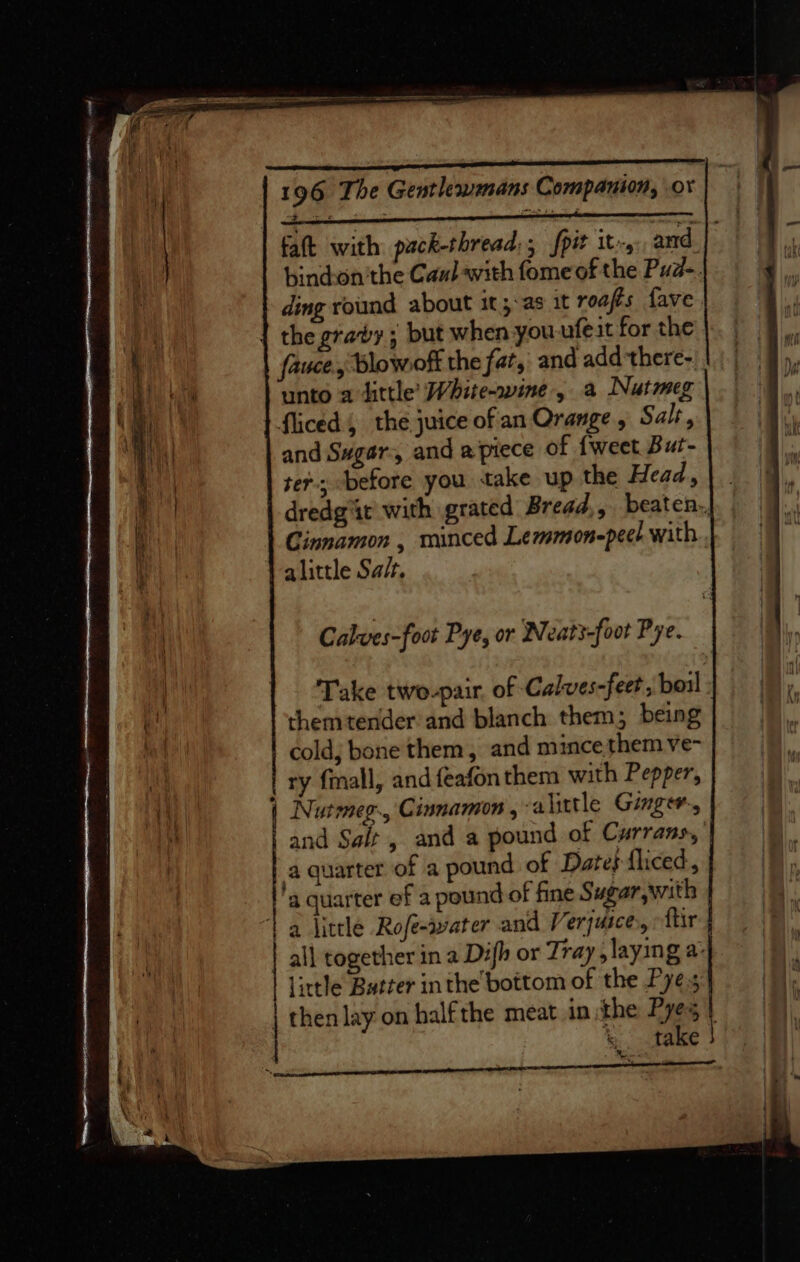 196 The Gentlewmans Companion, or
faſt with pack-thread; ſpit it, and
bind on the Caul with ſome of the Pud-
ding round about it; as it roaſts ſave
the gravy; but when you uſe it for the
ſauce, blow off the fat, and add there-
unto a little White-wine, a Nutmeg
ſliced, the juice of an Orange, Salt,
and Sugar, and a piece of ſweet But-
ter; before you take up the Head,
dredg it with grated Bread, beaten
Cinnamon, minced Lemmon-peel with
a little Salt.
Calves-foot Pye, or Neats-foot Pye.
Take two pair of Calves-feet, boil
them tender and blanch them; being
cold, bone them, and mince them ve-
ry ſmall, and ſeaſon them with Pepper,
Nutmeg, Cinnamon, a little Ginger,
and Salt, and a pound of Currans,
a quarter of a pound of Dates ſliced,
a quarter of a pound of fine Sugar, with
a little Roſe-water and Verjuice, ſtir
all together in a Diſh or Tray, laying a
little Butter in the bottom of the Pye;
then lay on half the meat in the Pye;
take